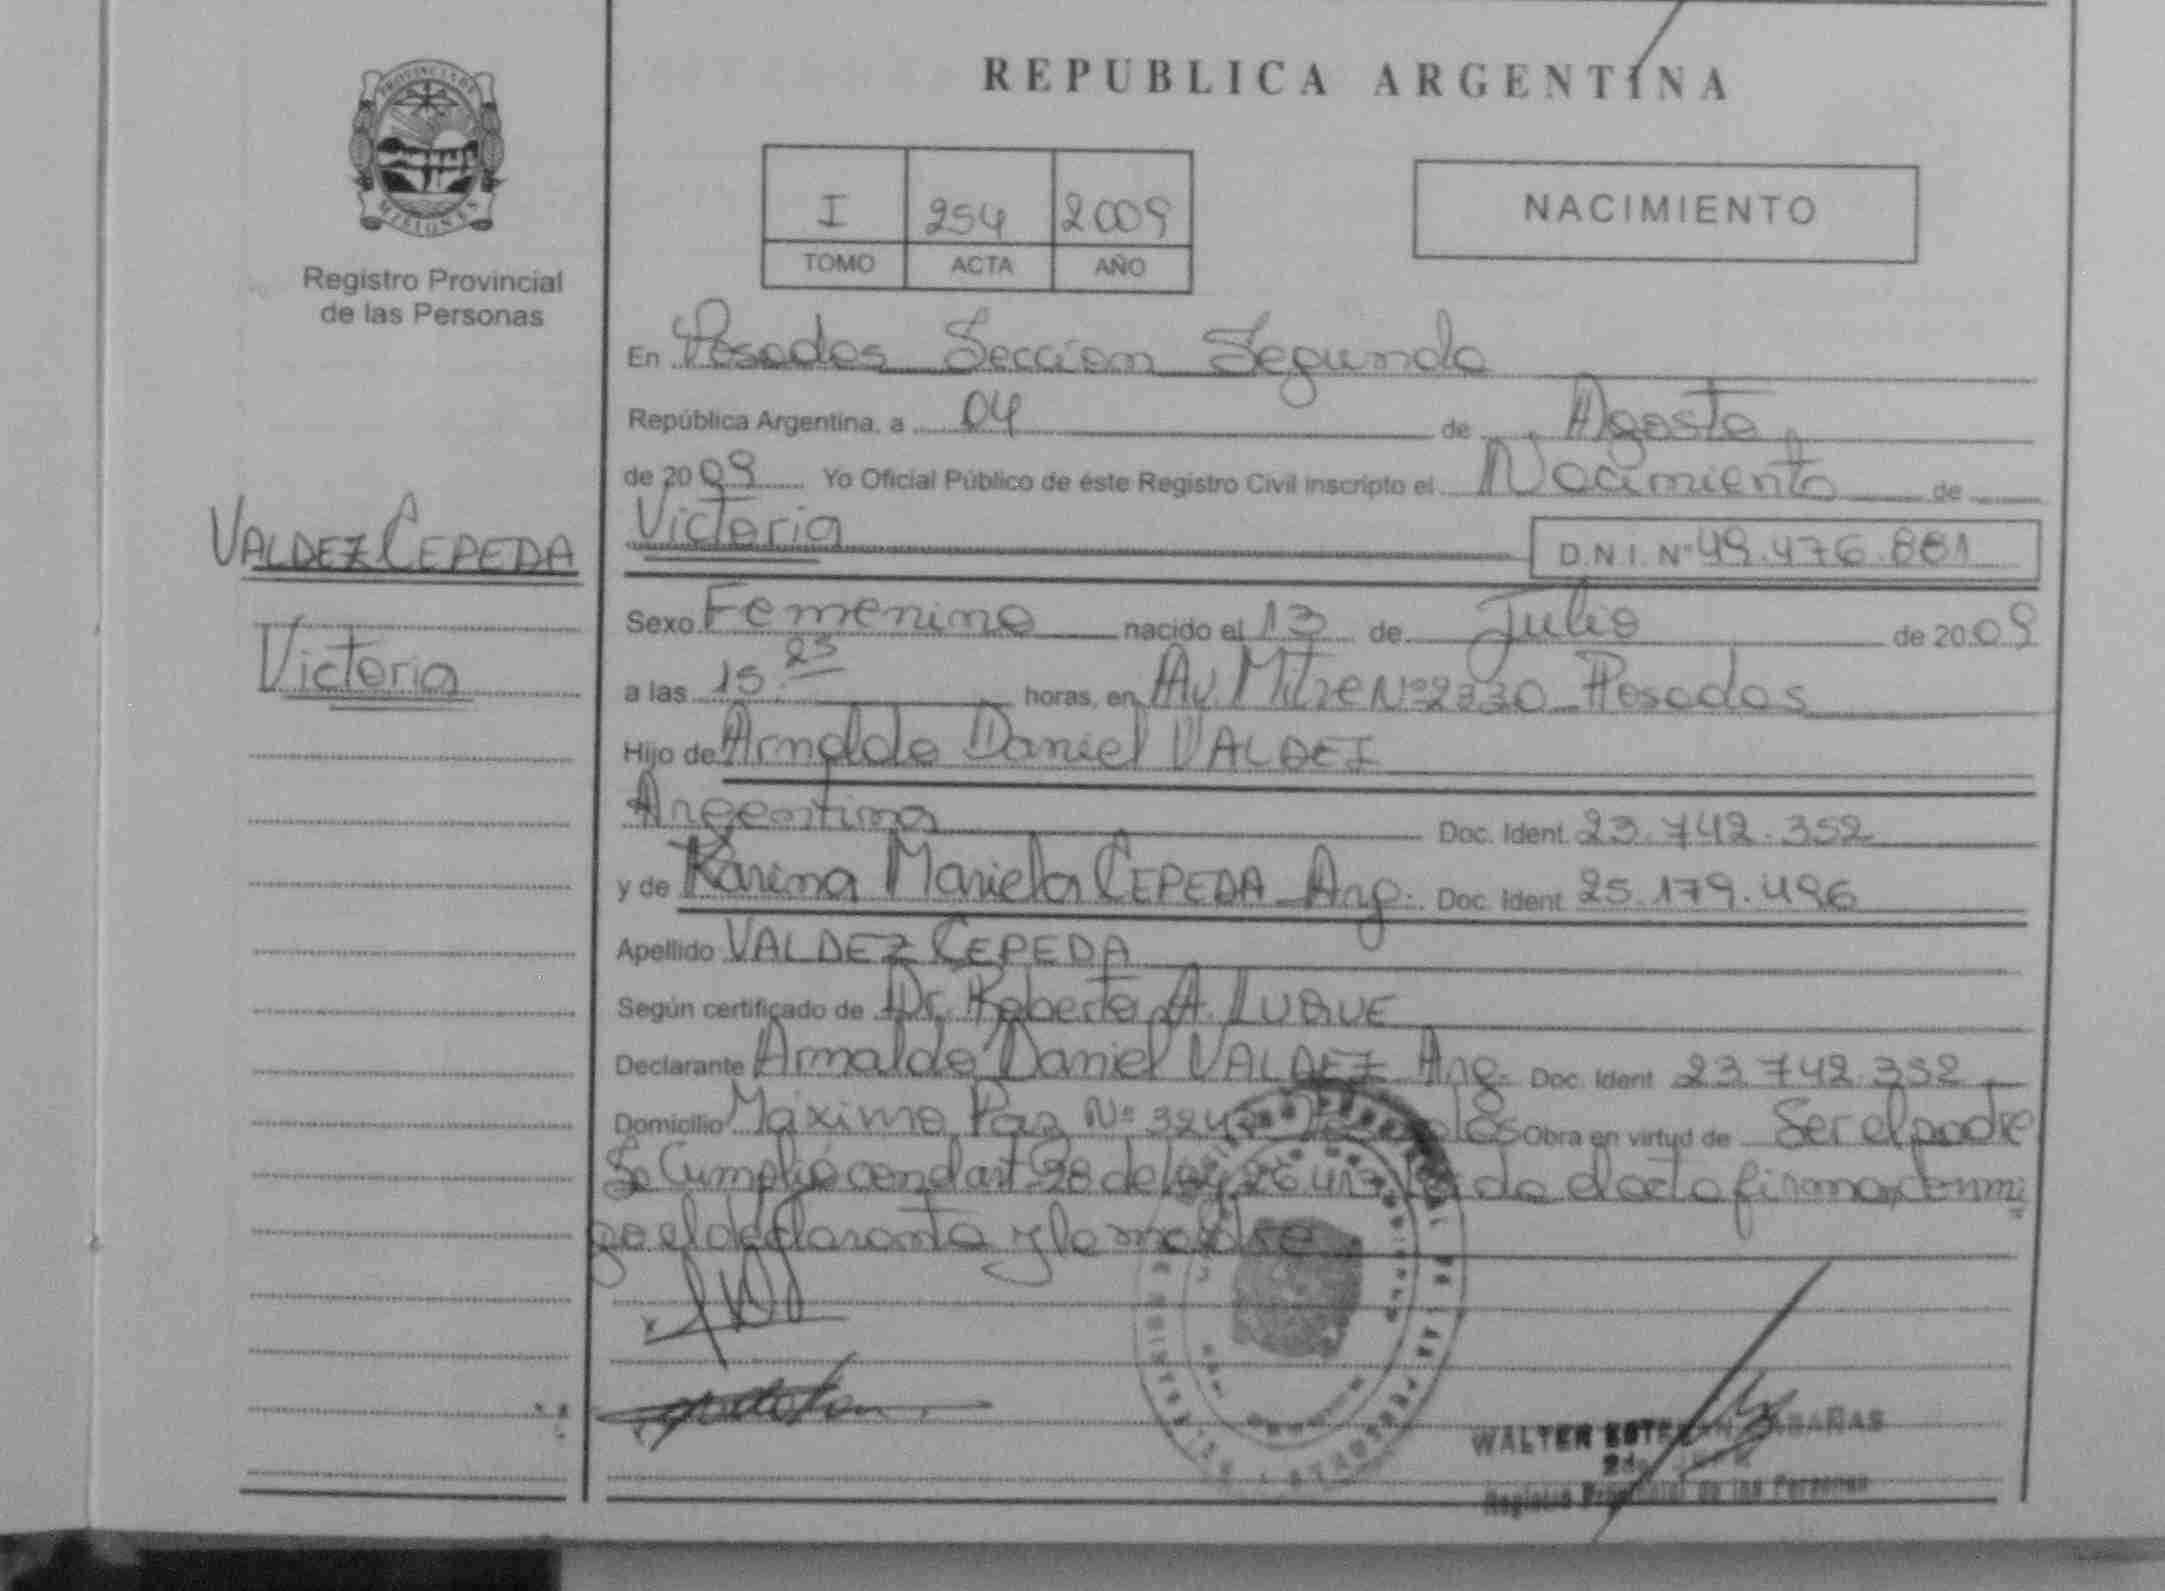 PROVINCIA DE
MISIONES
Registro Provincial
de las Personas
VALDEZ CEPEDA
Victoria
REPUBLICA ARGENTINA
I 254 2009
TOMO ACTA AÑO
NACIMIENTO
En Posadas Sección Segunda
República Argentina, a 04 de Agosto
de 2009 Yo Oficial Público de éste Registro Civil inscripto el Nacimiento de
Victoria D.N.I. Nº 49.476.881
Sexo Femenino nacido el 13 de Julio de 2009
a las 15.25 horas, en Av. Mitre Nº 2330 Posadas
Hijo de Arnaldo Daniel VALDEZ
Argentina Doc. Ident. 23.742.352
y de Karina Mariela CEPEDA Arg. Doc. Ident. 25.179.496
Apellido VALDEZ CEPEDA
Según certificado de Dr. Roberto A. LUQUE
Declarante Arnaldo Daniel VALDEZ Arg. Doc. Ident. 23.742.352
Domicilio Máximo Paz Nº Obra en virtud de Ser el padre
Se Cumplió con el art 28 de ley 26.413 el acta firman conmi
go el declarante y la madre
WALTER CABAÑAS
2do
Registro Provincial de las Personas